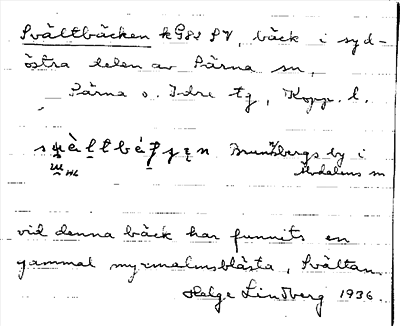 Svältbäcken k G83 SV, bäck i syd-
östra delen av Särna sn,
Särna o. Idre tg, Kopp. l.
Brunbergs by i
Älvdalens sn
HL
vid denna bäck har funnits en
gammal myrmalmsblästa, Svältan.
Helge Lindberg 1936.